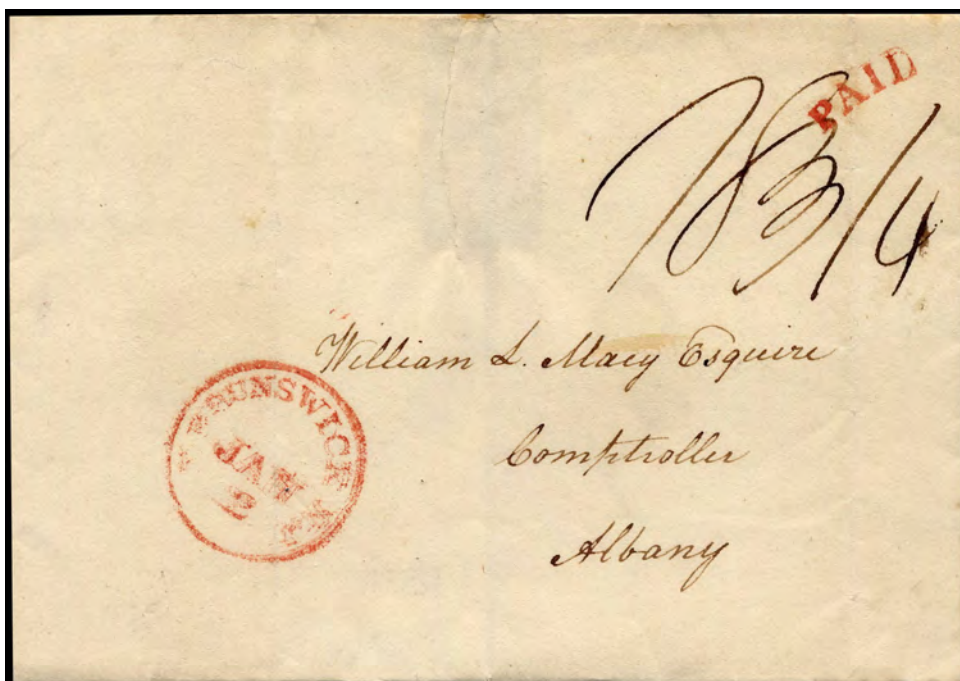 PAID
18 3/4
William L. Marcy Esquire
Comptroller
Albany
BRUNSWICK N.J
JAN